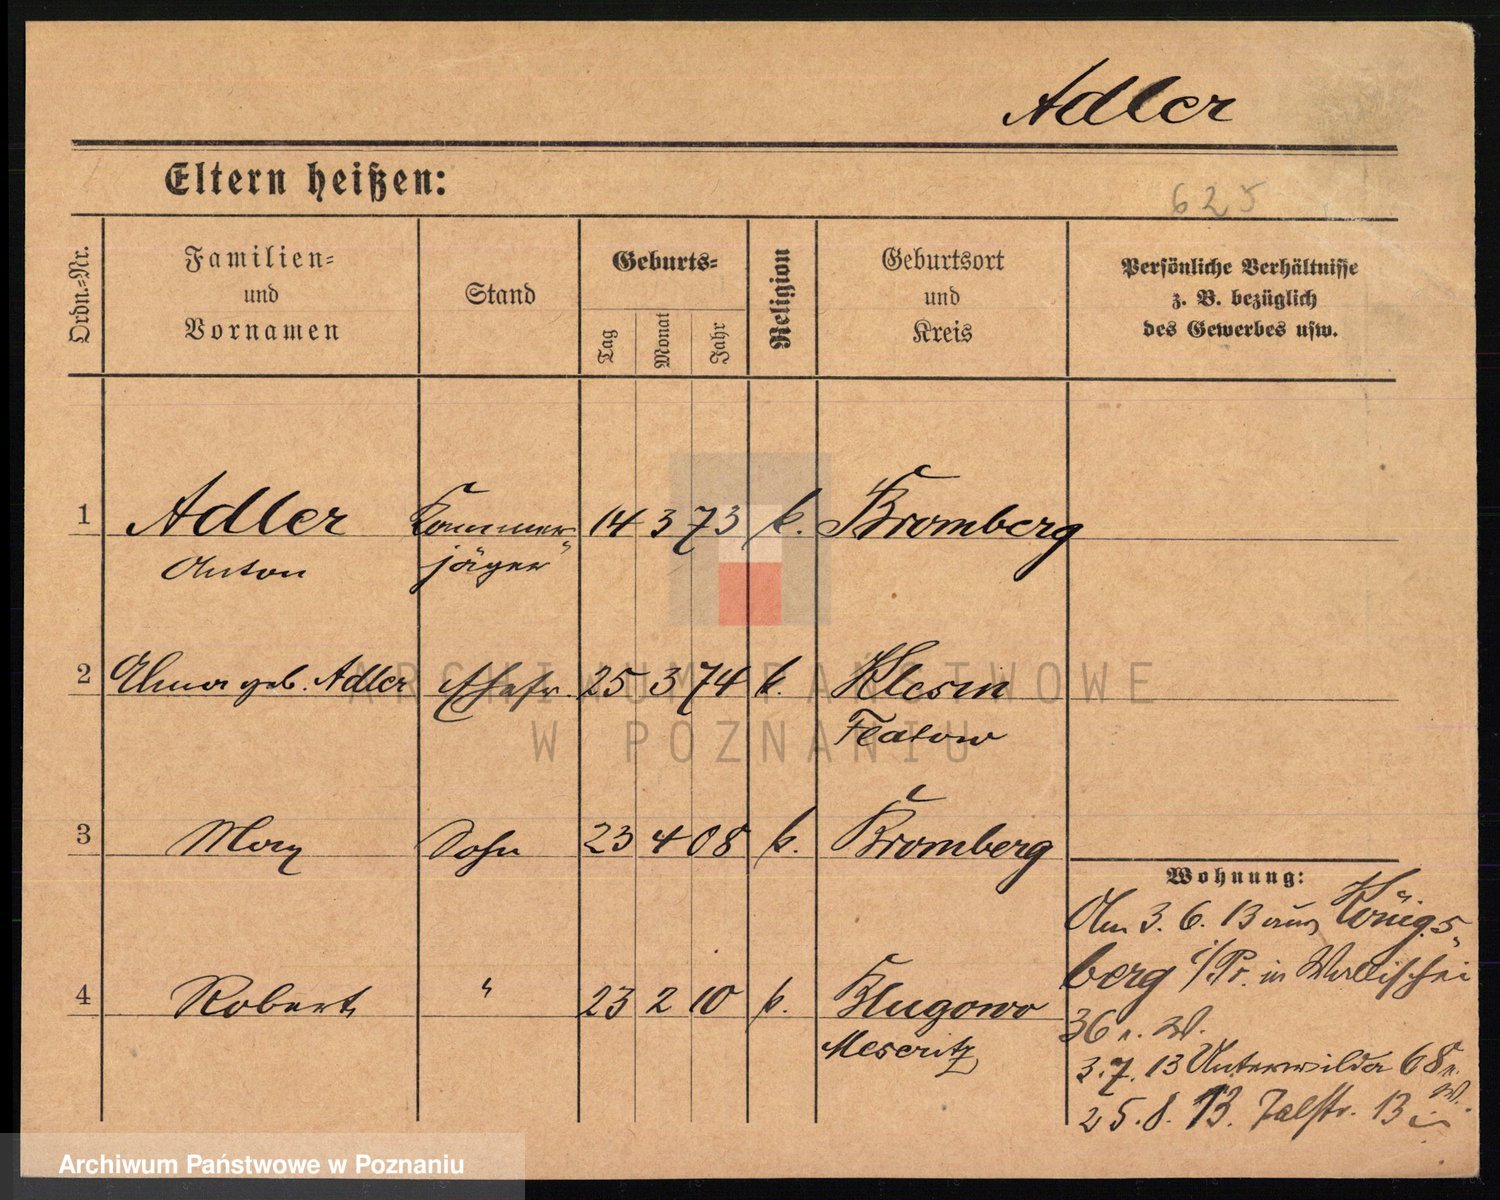 Adler
Eltern heißen:
625
Ordn.-Nr.
Familien- und Vornamen
Stand
Geburts-
Tag
Monat
Jahr
Religion
Geburtsort und Kreis
Persönliche Verhältnisse
z. B. bezüglich
des Gewerbes usw.
1 Adler Kammer- 14 3 73 k. Bromberg
Anton jäger
2 geb. Adler Ehefr. 25 3 74 k. Klesin
Flatow
3 Max Sohn 23 4 08 k. Bromberg
Wohnung:
Am 3. 6. 13 aus Königs-
berg i/Pr. in Wallischei
4 Robert " 23 2 10 k. Klugowo
36 n. W.
Meseritz
3. 7. 13 Unterwilda 68 n. W.
25. 8. 13. Talstr. 13
ARCHIWUM PAŃSTWOWE
W POZNANIU
Archiwum Państwowe w Poznaniu